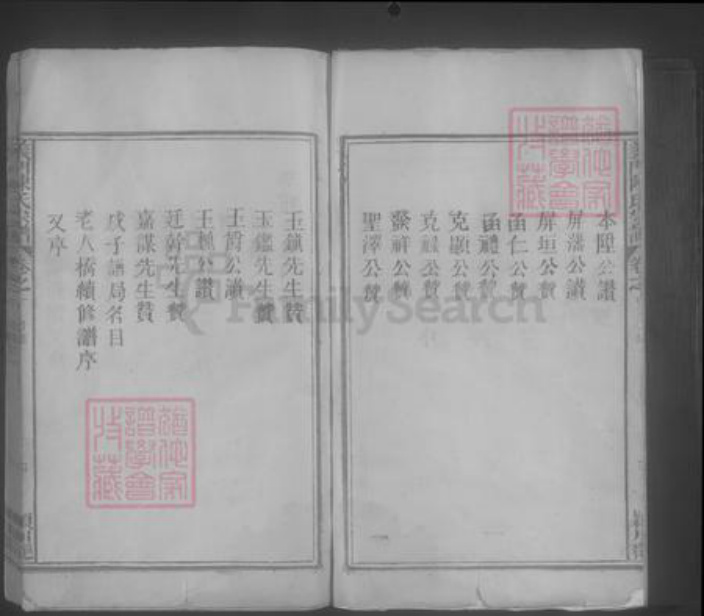 本陞公讚
屏藩公讚
屏垣公贊
函仁公贊
函禮公贊
克勳公贊
克祿公贊
聚祥公贊
聖澤公贊
玉鎮先生贊
玉鑑先生贊
玉爵公讚
王公讚
廷幹先生贊
嘉謀先生贊
戊子譜局名目
老八橋續修譜序
又序
FamilySearch